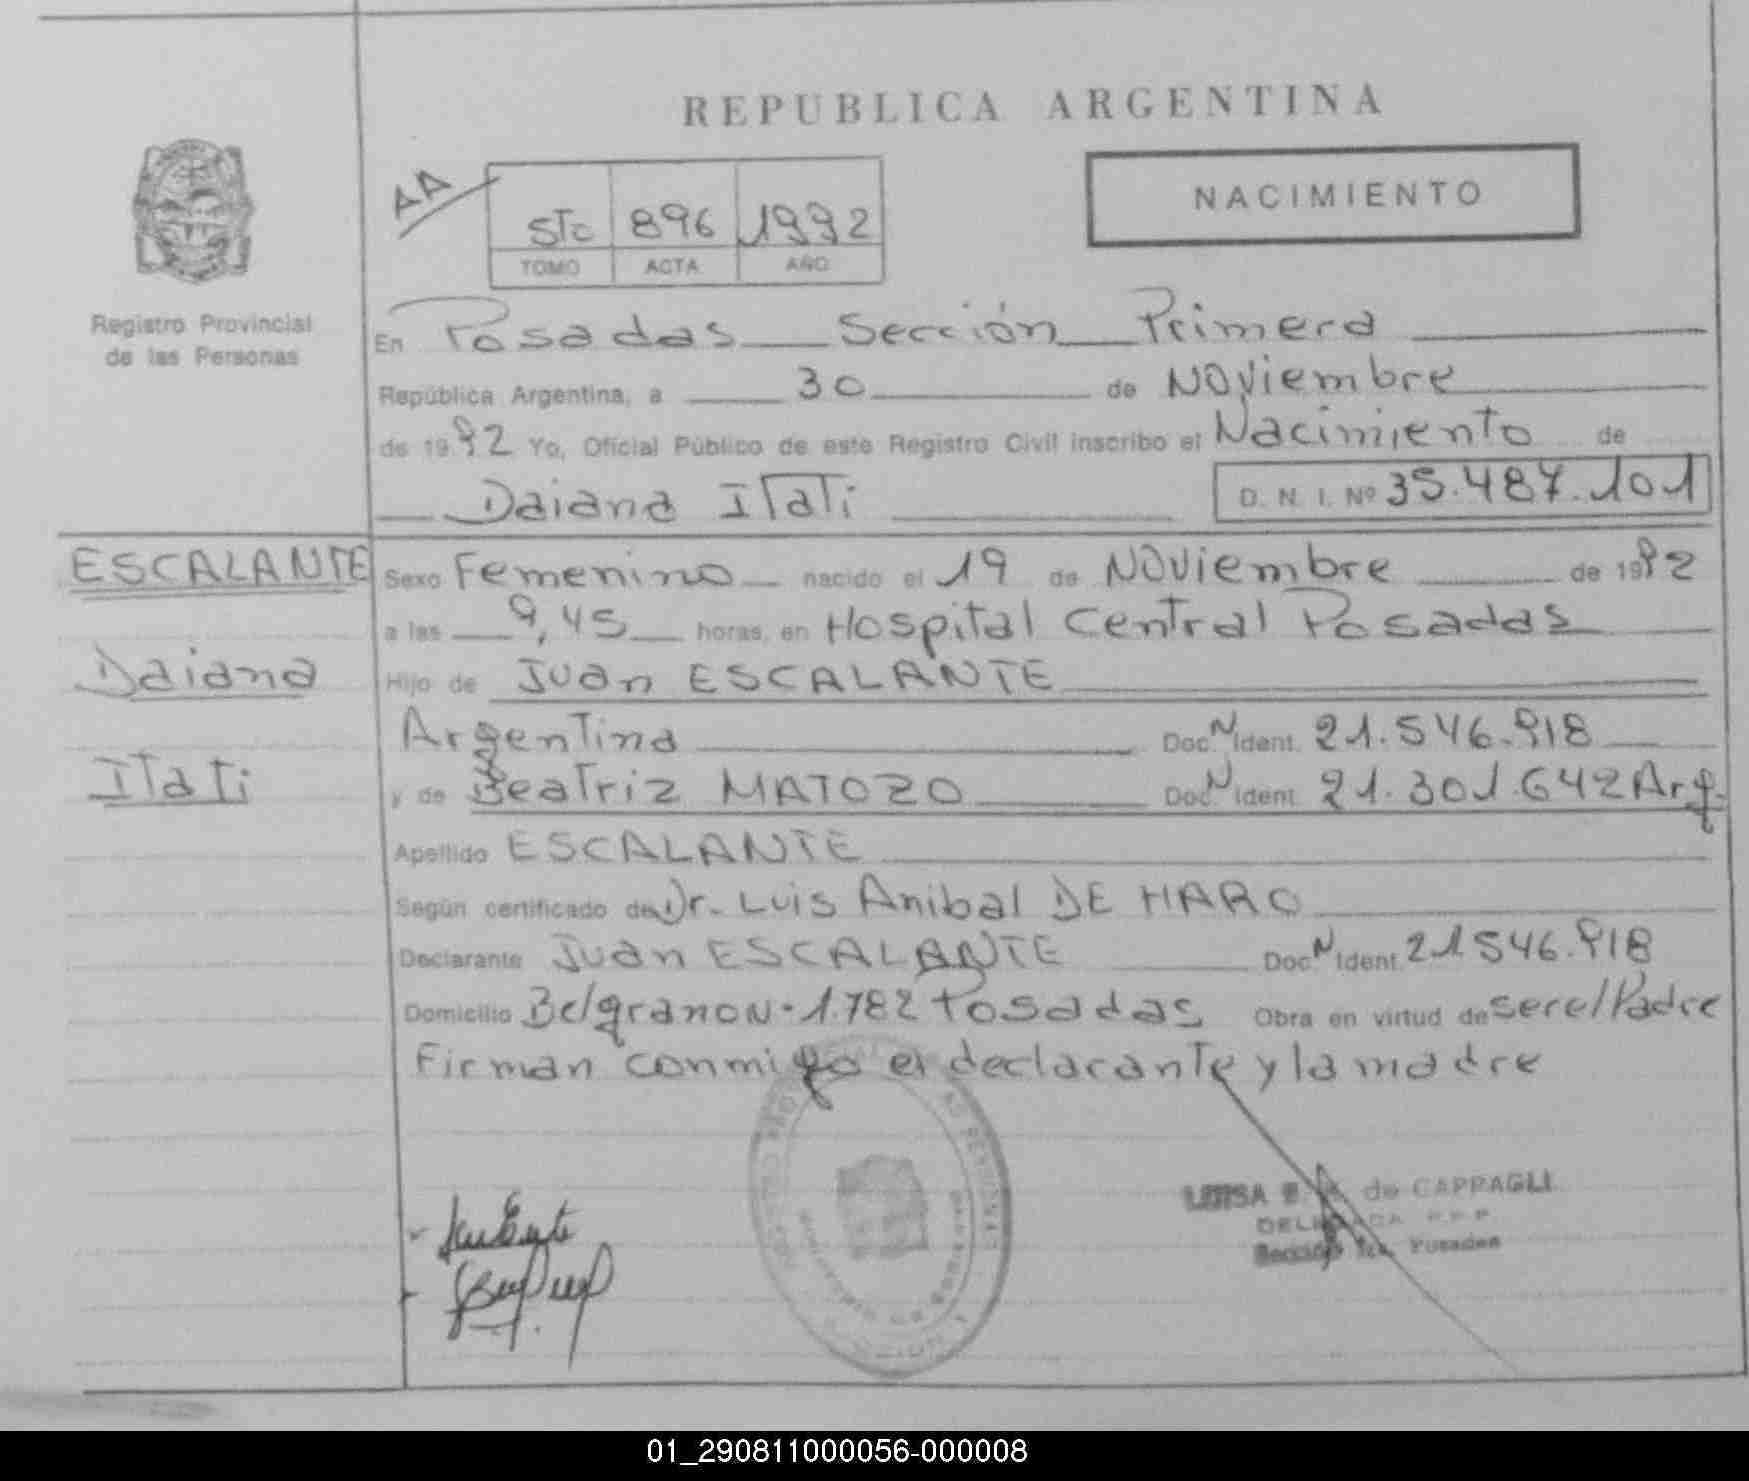 REPUBLICA ARGENTINA
NACIMIENTO
AA
STc 896 1992
TOMO ACTA AÑO
Registro Provincial
de las Personas
En Posadas Sección Primera
República Argentina, a 30 de Noviembre
de 1992 Yo, Oficial Público de este Registro Civil inscribo el Nacimiento de
Daiana Itati D. N. I. Nº 35.487.101
ESCALANTE
Daiana
Itati
Sexo Femenino nacido el 19 de Noviembre de 1992
a las 9,45 horas, en Hospital Central Posadas
Hijo de Juan ESCALANTE
Argentina Doc. N Ident. 21.546.918
y de Beatriz MATOZO Doc. N Ident. 21.301.642 Arg.
Apellido ESCALANTE
Según certificado de Dr. Luis Anibal DE HARO
Declarante Juan ESCALANTE Doc. N Ident. 21.546.918
Domicilio Belgrano N- 1.782 Posadas Obra en virtud de ser el Padre
Firman conmigo el declarante y la madre
de CAPPAGLI
Sección 1ra. Posadas
01_290811000056-000008